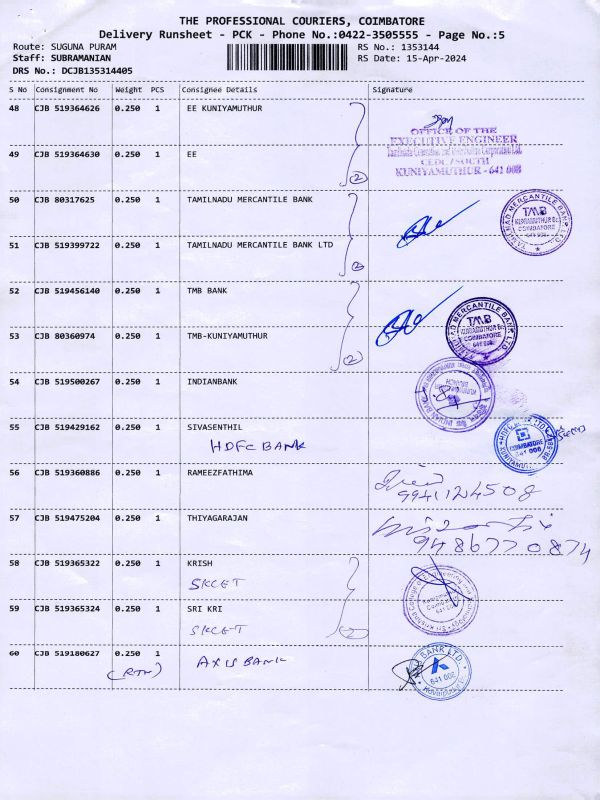 THE PROFESSIONAL COURIERS, COIMBATORE
Delivery Runsheet - PCK - Phone No.:0422-3505555 - Page No.:5
Route: SUGUNA PURAM RS No.: 1353144
Staff: SUBRAMANIAN RS Date: 15-Apr-2024
DRS No.: DCJB135314405
S No Consignment No Weight PCS Consignee Details Signature
48 CJB 519364626 0.250 1 EE KUNIYAMUTHUR
OFFICE OF THE
EXECUTIVE ENGINEER
CEDC/SOUTH
KUNIYAMUTHUR - 641 008
49 CJB 519364630 0.250 1 EE
2
50 CJB 80317625 0.250 1 TAMILNADU MERCANTILE BANK
TAMILNAD MERCANTILE BANK LTD.
TMB
KUNIAMUTHUR Br.
COIMBATORE
641 008
51 CJB 519399722 0.250 1 TAMILNADU MERCANTILE BANK LTD
2
52 CJB 519456140 0.250 1 TMB BANK
TAMILNAD MERCANTILE BANK LTD.
TMB
KUNIAMUTHUR Br.
COIMBATORE
641 008
53 CJB 80360974 0.250 1 TMB-KUNIYAMUTHUR
2
54 CJB 519500267 0.250 1 INDIANBANK
INDIAN BANK
55 CJB 519429162 0.250 1 SIVASENTHIL
HDFC BANK
COIMBATORE
641 008
56 CJB 519360886 0.250 1 RAMEEZFATHIMA
9941124508
57 CJB 519475204 0.250 1 THIYAGARAJAN
9486770874
58 CJB 519365322 0.250 1 KRISH
SKCET
59 CJB 519365324 0.250 1 SRI KRI
SKCET
2
60 CJB 519180627 0.250 1 AXIS BANK
(RTN)
BANK LTD.
641 008